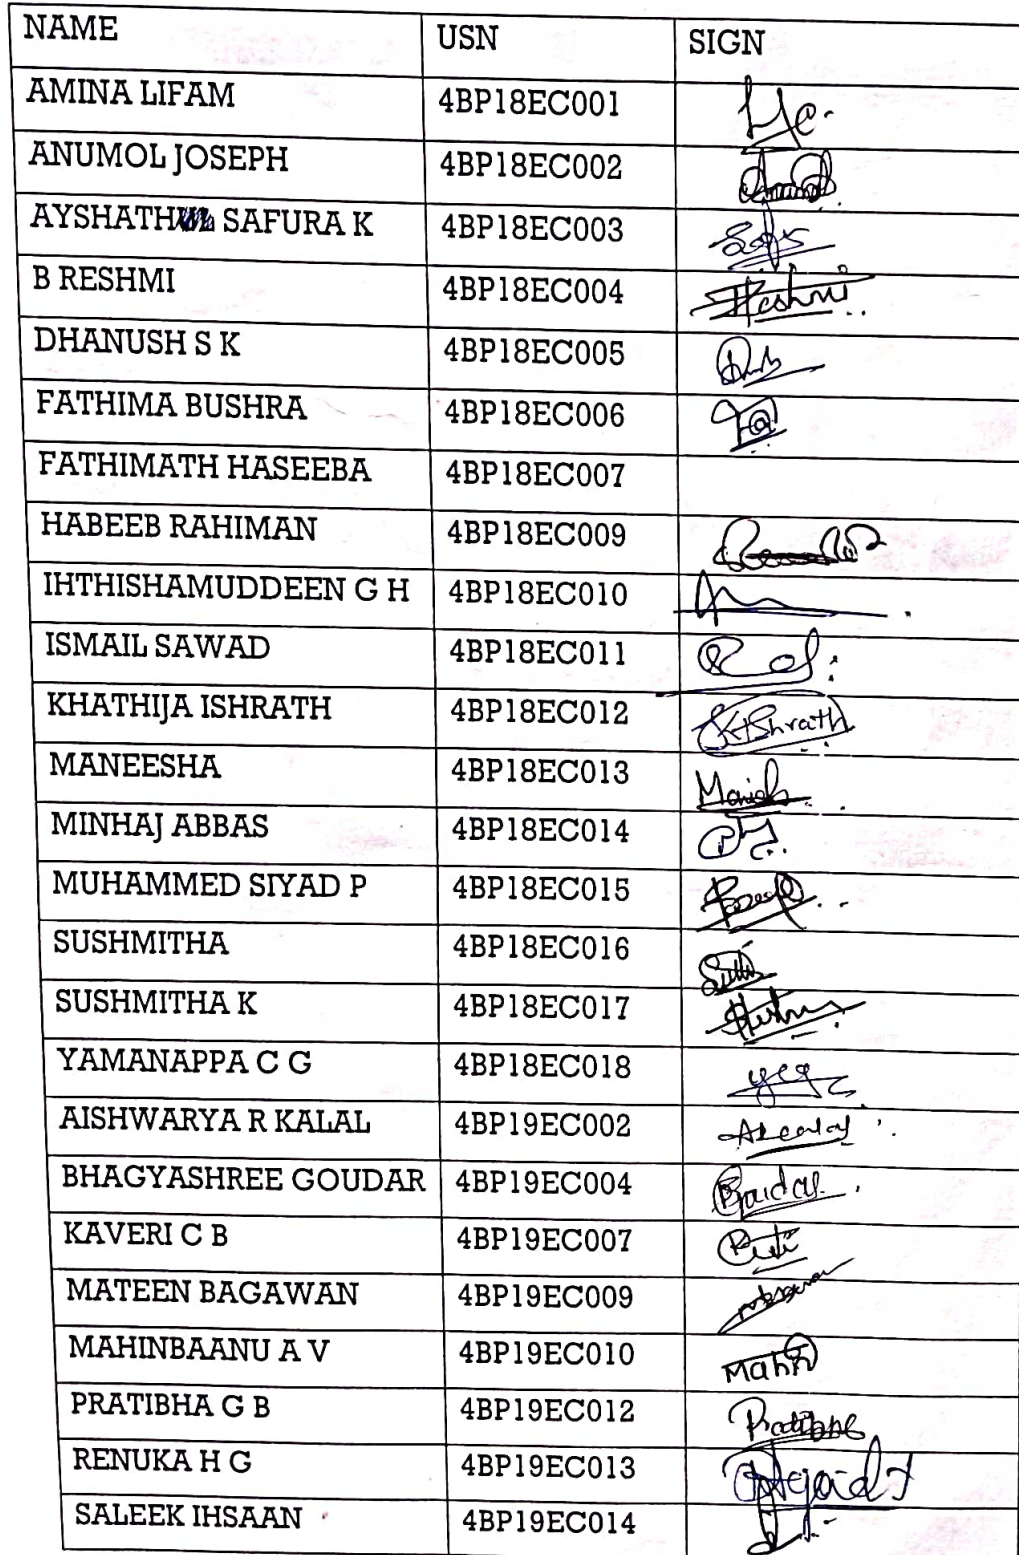 NAME USN SIGN
AMINA LIFAM 4BP18EC001
ANUMOL JOSEPH 4BP18EC002
AYSHATH SAFURA K 4BP18EC003
B RESHMI 4BP18EC004 Reshmi
DHANUSH S K 4BP18EC005
FATHIMA BUSHRA 4BP18EC006
FATHIMATH HASEEBA 4BP18EC007
HABEEB RAHIMAN 4BP18EC009
IHTHISHAMUDDEEN G H 4BP18EC010
ISMAIL SAWAD 4BP18EC011
KHATHIJA ISHRATH 4BP18EC012
MANEESHA 4BP18EC013
MINHAJ ABBAS 4BP18EC014
MUHAMMED SIYAD P 4BP18EC015
SUSHMITHA 4BP18EC016
SUSHMITHA K 4BP18EC017
YAMANAPPA C G 4BP18EC018 ycg
AISHWARYA R KALAL 4BP19EC002
BHAGYASHREE GOUDAR 4BP19EC004
KAVERI C B 4BP19EC007
MATEEN BAGAWAN 4BP19EC009
MAHINBAANU A V 4BP19EC010 Mahin
PRATIBHA G B 4BP19EC012 Pratibha
RENUKA H G 4BP19EC013
SALEEK IHSAAN 4BP19EC014